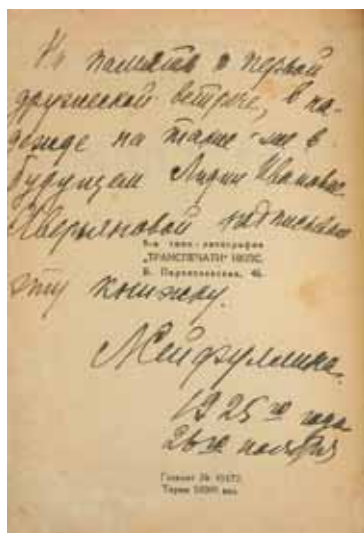 На память о первой
дружеской встрече, в на-
дежде на такие же в
будущем Лидии Ивановне
Аверьяновой надписываю
5-я типо-литография
„ТРАНСПЕЧАТИ“ НКПС.
Б. Переяславская, 46.
эту книжку.
Л. Сейфуллина.
1925 го года
26 го ноября
Главлит №
Тираж экз.